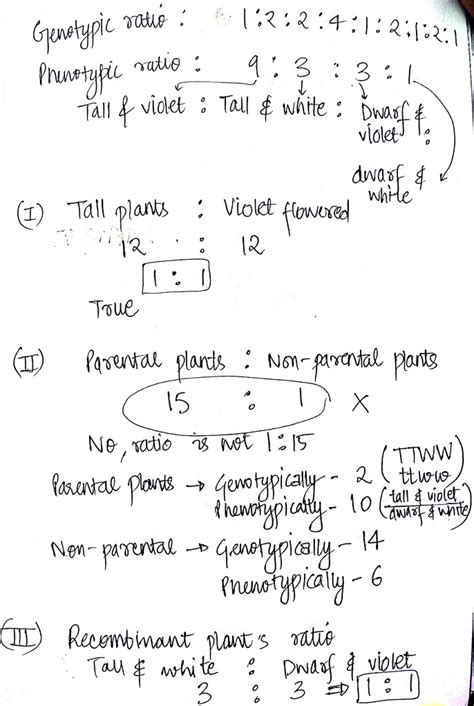 Genotypic ratio : 1:2:2:4:1:2:1:2:1
Phenotypic ratio : 9 : 3 : 3 : 1
Tall & violet : Tall & white : Dwarf & violet :
dwarf & white
(I) Tall plants : Violet flowered
12 : 12
1 : 1
True
(II) Parental plants : Non-parental plants
15 : 1 X
No, ratio is not 1:15
Parental plants → Genotypically - 2 (TTWW ttww)
Phenotypically - 10 (tall & violet dwarf & white)
Non-parental → Genotypically - 14
Phenotypically - 6
(III) Recombinant plant's ratio
Tall & white : Dwarf & violet
3 : 3 ⇒ 1 : 1